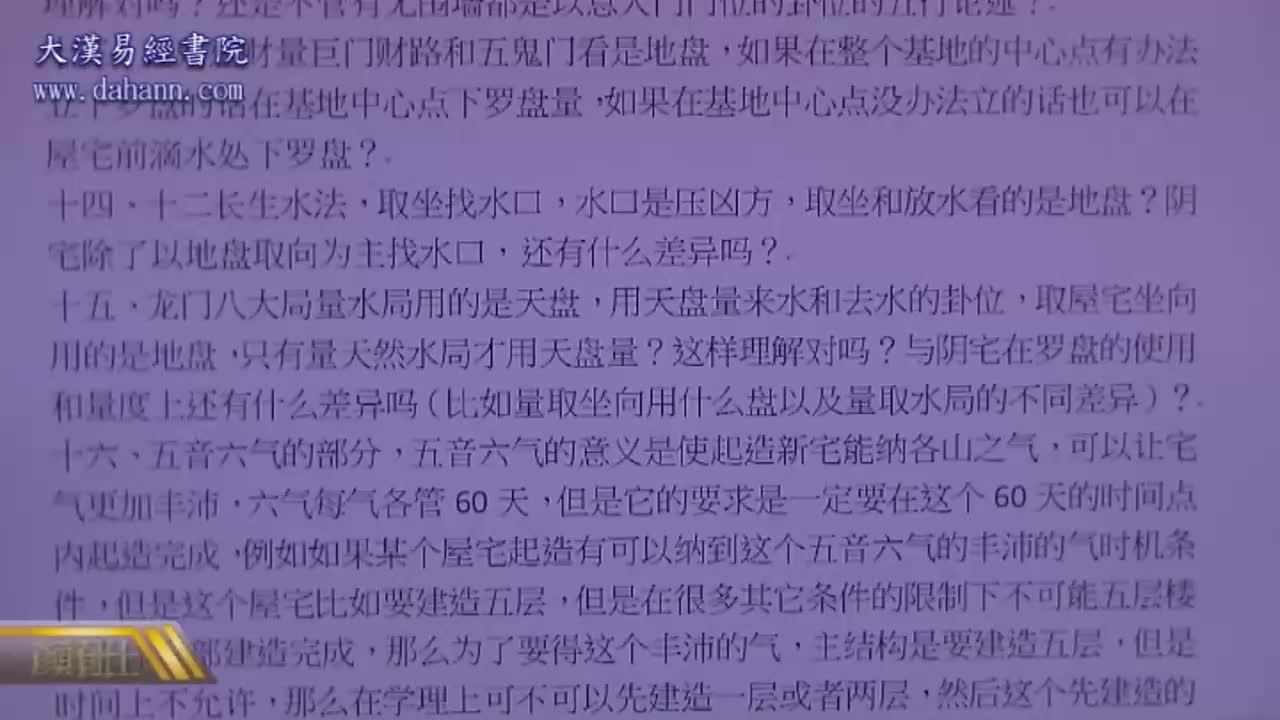 理解对吗？还是不管有无围墙都是以总大门门位的卦位的五行论述？.
大漢易經書院
财量巨门财路和五鬼门看是地盘，如果在整个基地的中心点有办法
www.dahann.com
立下罗盘的话在基地中心点下罗盘量，如果在基地中心点没办法立的话也可以在
屋宅前滴水处下罗盘？.
十四、十二长生水法，取坐找水口，水口是压凶方，取坐和放水看的是地盘？阴
宅除了以地盘取向为主找水口，还有什么差异吗？.
十五、龙门八大局量水局用的是天盘，用天盘量来水和去水的卦位，取屋宅坐向
用的是地盘，只有量天然水局才用天盘量？这样理解对吗？与阴宅在罗盘的使用
和量度上还有什么差异吗（比如量取坐向用什么盘以及量取水局的不同差异）？.
十六、五音六气的部分，五音六气的意义是使起造新宅能纳各山之气，可以让宅
气更加丰沛，六气每气各管 60 天，但是它的要求是一定要在这个 60 天的时间点
内起造完成，例如如果某个屋宅起造有可以纳到这个五音六气的丰沛的气时机条
件，但是这个屋宅比如要建造五层，但是在很多其它条件的限制下不可能五层楼
部建造完成，那么为了要得这个丰沛的气，主结构是要建造五层，但是
时间上不允许，那么在学理上可不可以先建造一层或者两层，然后这个先建造的